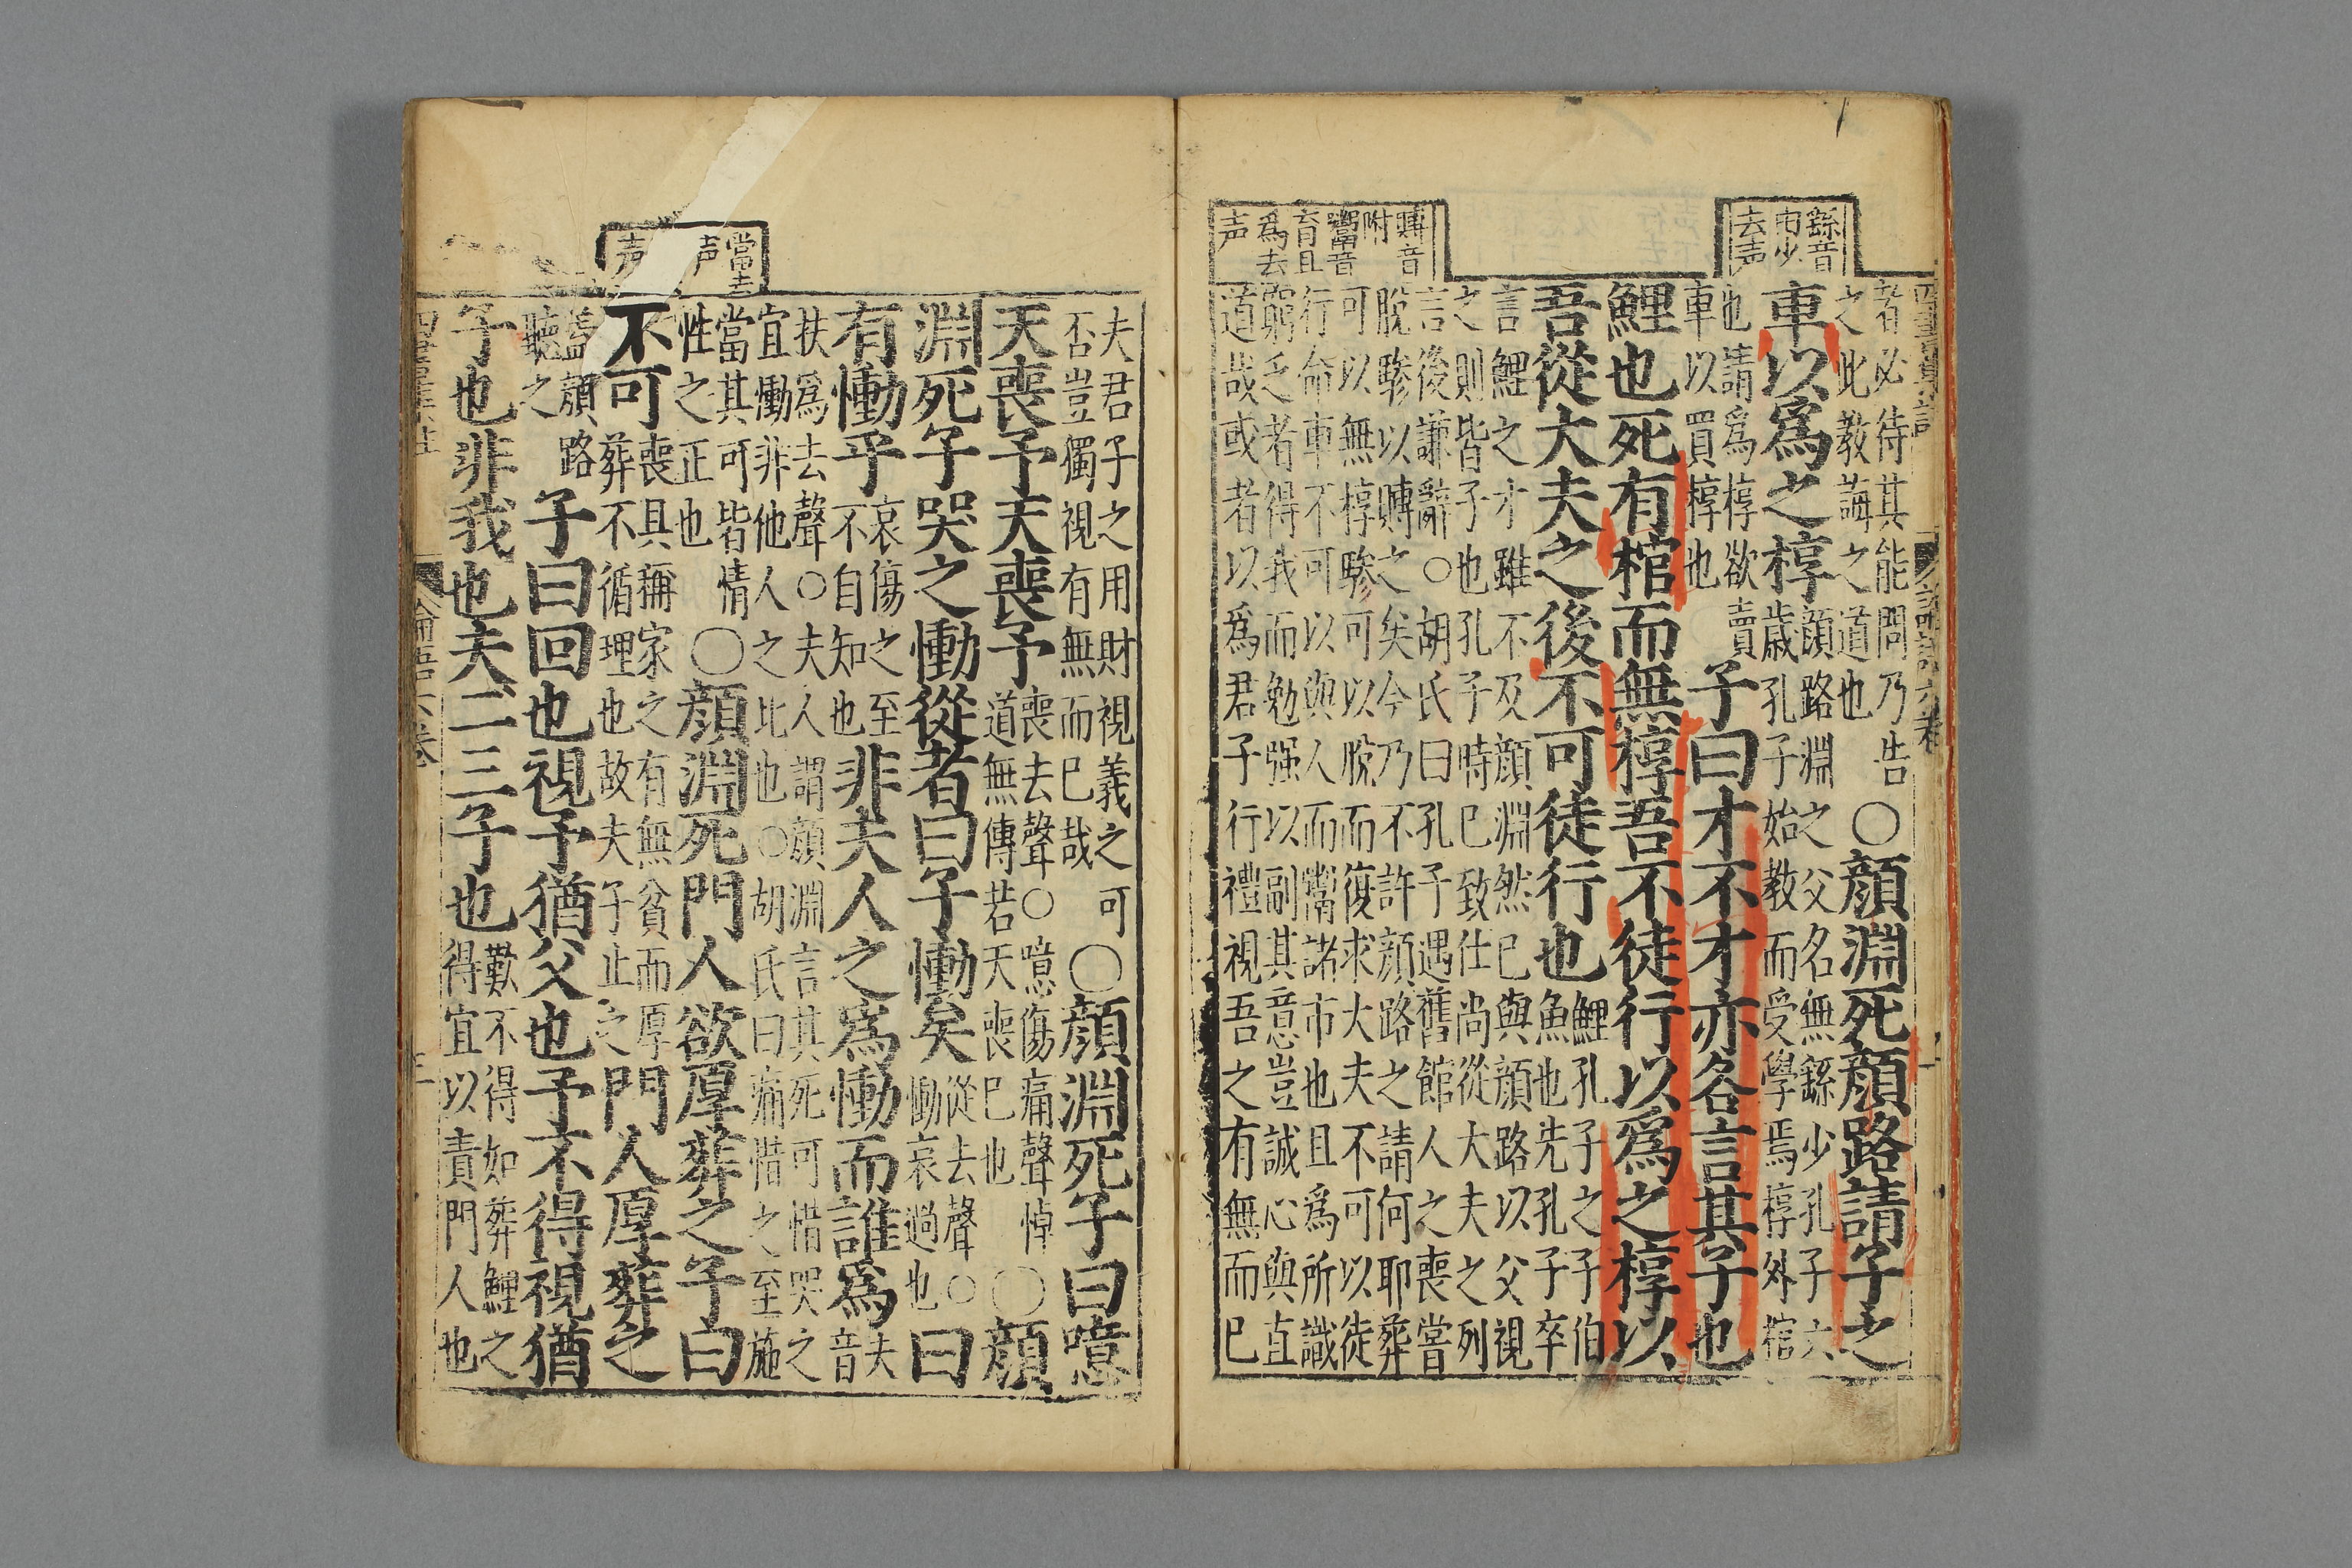 繇音
去声
者必待其能問乃告
之此教誨之道也
○顏淵死顏路請子之
車以爲之椁
顏路淵之父名無繇少孔子六
歲孔子始教而受學焉椁外棺
也請爲椁欲賣
車以買椁也
子曰才不才亦各言其子也
鯉也死有棺而無椁吾不徒行以爲之椁以
吾從大夫之後不可徒行也
鯉孔子之子伯
魚也先孔子卒
言鯉之才雖不及顏淵然已與顏路以父視
之則皆子也孔子時已致仕尚從大夫之列
言後謙辭○胡氏曰孔子遇舊館人之喪當
脫驂以賻之矣今乃不許顏路之請何耶葬
可以無椁驂可以脫而復求大夫不可以徒
行命車不可以與人而鬻諸市也且爲所識
窮乏者得我而勉强以副其意豈誠心與直
道哉或者以爲君子行禮視吾之有無而已
賻音
附
鬻音
育且
爲去
声
夫君子之用財視義之可
否豈獨視有無而已哉
○顏淵死子曰噫
天喪予天喪予
喪去聲○噫傷痛聲悼
道無傳若天喪已也
○顏
淵死子哭之慟從者曰子慟矣
從去聲○
慟哀過也
曰
有慟乎
哀傷之至
不自知也
非夫人之爲慟而誰爲
夫
音
扶爲去聲○夫人謂顏淵言其死可惜哭之
宜慟非他人之比也○胡氏曰痛惜之至施
當其可皆情
性之正也
○顏淵死門人欲厚葬之子曰
不可
喪具稱家之有無貧而厚
葬不循理也故夫子止之
門人厚葬之
蓋顏路
聽之
子曰回也視予猶父也予不得視猶
子也非我也夫二三子也
歎不得如葬鯉之
得宜以責門人也
當去
声
声
論語六卷